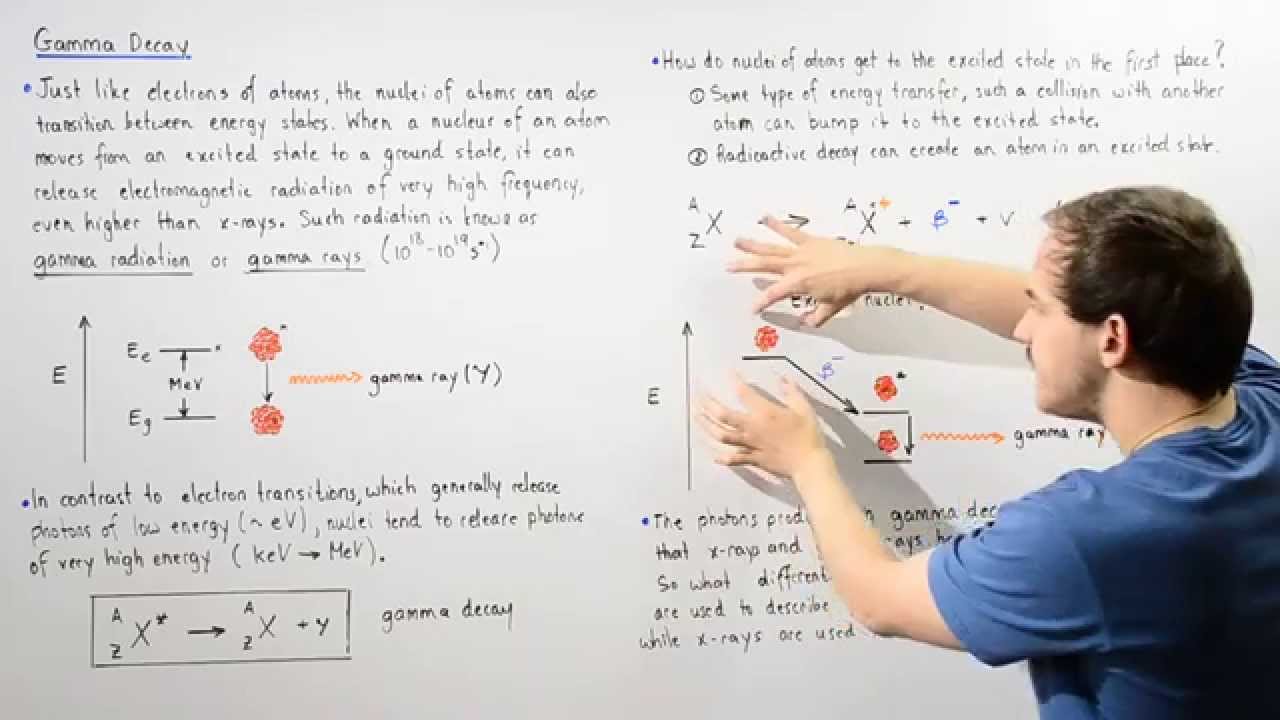 Gamma Decay
• Just like electrons of atoms, the nuclei of atoms can also
transition between energy states. When a nucleur of an atom
moves from an excited state to a ground state, it can
release electromagnetic radiation of very high frequency,
even higher than x-rays. Such radiation is known as
gamma radiation or gamma rays (10¹⁸-10¹⁹s⁻¹)
E
Ee
MeV
Eg
*
gamma ray (γ)
• In contrast to electron transitions, which generally release
photons of low energy (~eV), nuclei tend to release photons
of very high energy ( keV → MeV).
A Z X* → A Z X + γ
gamma decay
• How do nuclei of atoms get to the excited state in the first place?
① Some type of energy transfer, such a collision with another
atom can bump it to the excited state.
② Radioactive decay can create an atom in an excited state.
A Z X → A X*+ + β⁻ + ν
nuclei.
E
β⁻
*
gamma ray
• The photons gamma
that x-rays and
So what
are used to describe
while x-rays are used